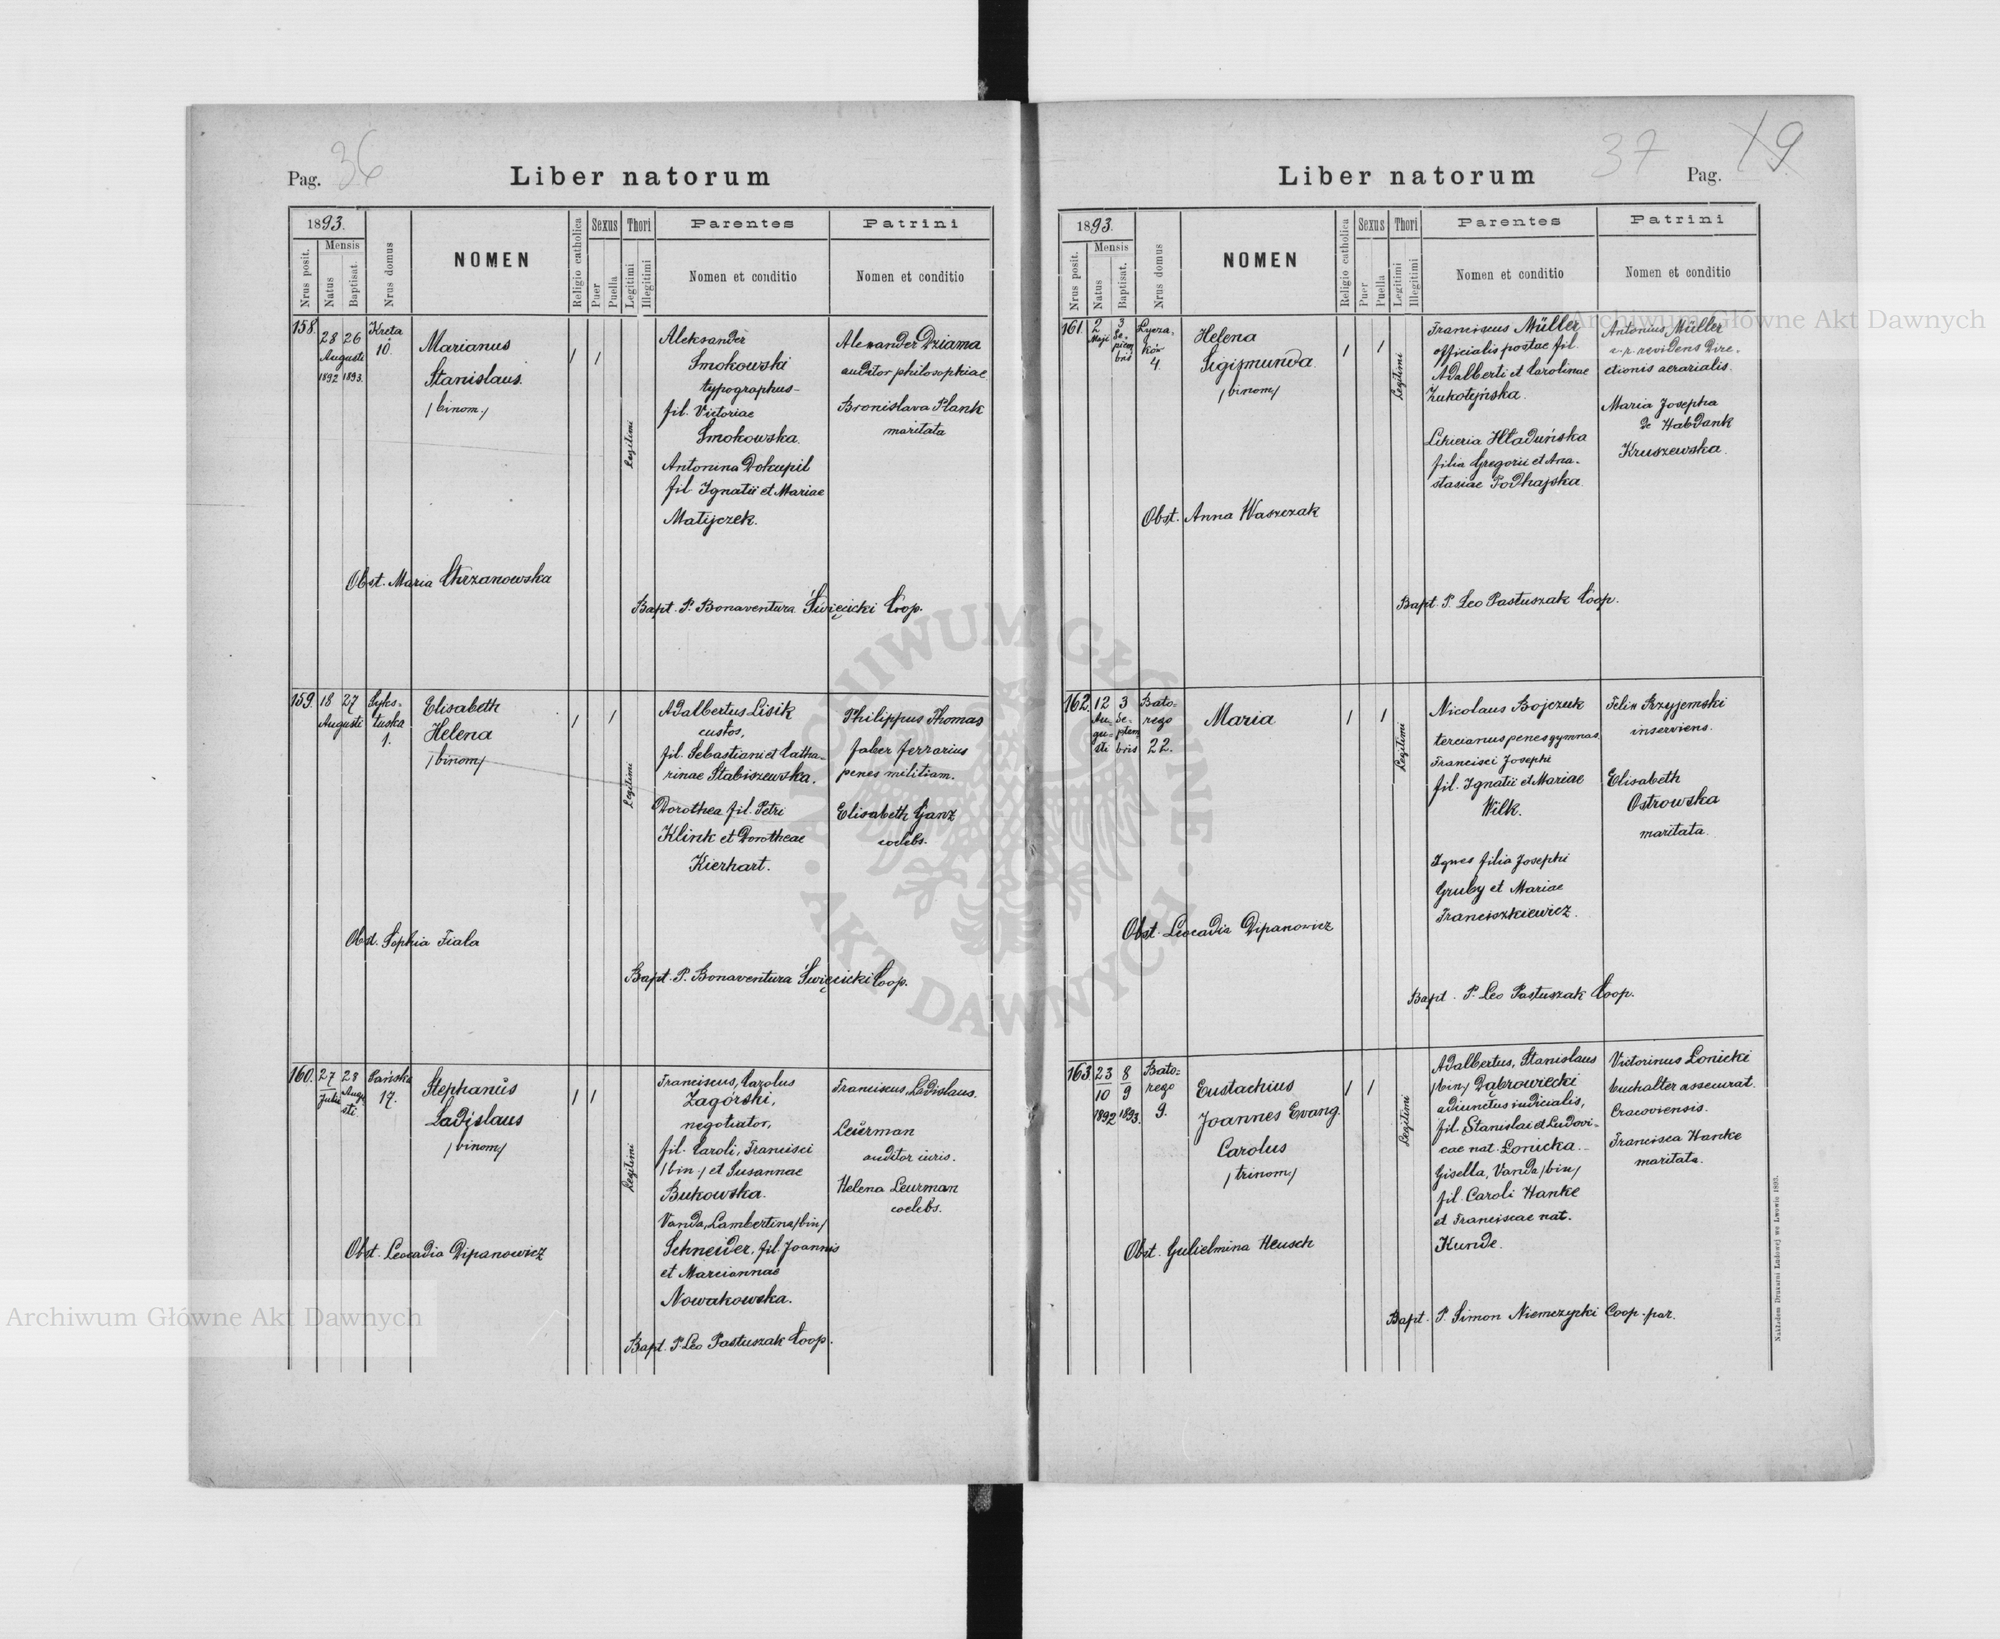 Pag. 36
Liber natorum
1893.
Nrus posit.
Mensis
Natus
Baptisat.
Nrus domus
NOMEN
Religio catholica
Sexus
Puer
Puella
Thori
Legitimi
Illegitimi
Parentes
Nomen et conditio
Patrini
Nomen et conditio
158.
28 26
Augusti
1892 1893.
Kreta
10.
Marianus
Stanislaus.
/binom/
1
1
Legitimi
Aleksander
Smokowski
typographus-
fil. Victoriae
Smokowska.
Antonina Dokupil
fil. Ignatii et Mariae
Matijczek.
Alexander Dziama
auditor philosophiae
Bronislava Plank
maritata
Obst. Maria Chrzanowska
Bapt. P. Bonaventura Święcicki Coop.
159.
18 27
Augusti
Syks-
tuska
1.
Elisabeth
Helena
/binom/
1
1
Legitimi
Adalbertus Lisik
custos,
fil. Sebastiani et Catha-
rinae Stabiszewska.
Dorothea fil. Petri
Klink et Dorotheae
Kierhart.
Philippus Thomas
faber ferrarius
penes militiam.
Elisabeth Ganz
coelebs.
Obst. Sophia Fiala
Bapt. P. Bonaventura Święcicki Coop.
160.
27 28
Julii Augu
sti
Pańska
17.
Stephanus
Ladislaus
/binom/
1
1
Legitimi
Franciscus, Carolus
Zagórski,
negotiator,
fil. Caroli, Francisci
/bin./ et Susannae
Bukowska.
Vanda, Lambertina /bin/
Schneider, fil. Joannis
et Mariannae
Nowakowska.
Franciscus, Ladislaus.
Leurman
auditor iuris.
Helena Leurman
coelebs.
Obst. Leocadia Dipanowicz
Bapt. P. Leo Pastuszak Coop.
Liber natorum
37
Pag. 19
1893.
Nrus posit.
Mensis
Natus
Baptisat.
Nrus domus
NOMEN
Religio catholica
Sexus
Puer
Puella
Thori
Legitimi
Illegitimi
Parentes
Nomen et conditio
Patrini
Nomen et conditio
161.
2 3
Maji Se-
ptem
bris
Lycza-
ków
4.
Helena
Sigismunda.
/binom/
1
1
Legitimi
Franciscus Müller
officialis postae fil.
Adalberti et Carolinae
Żukotyńska.
Hładuńska
filia Gregorii et Ana-
stasiae Podhajska.
Antonius Müller
c. r. revidens Dire-
ctionis aerarialis.
Maria Josepha
de Habdank
Kruszewska.
Obst. Anna Waszczak
Bapt. P. Leo Pastuszak Coop.
162.
12 3
Au- Se-
gu- ptem
sti bris
Bato-
rego
22.
Maria
1
1
Legitimi
Nicolaus Bojczuk
tercianus penes gymnas.
Francisci Josephi
fil. Ignatii et Mariae
Wilk.
Agnes filia Josephi
Gruby et Mariae
Franciszkiewicz.
Felix Przyjemski
inserviens.
Elisabeth
Ostrowska
maritata.
Obst. Leocadia Dipanowicz
Bapt. P. Leo Pastuszak Coop.
163.
23 8
10 9
1892 1893.
Bato-
rego
9.
Eustachius
Joannes Evang.
Carolus
/trinom/
1
1
Legitimi
Adalbertus, Stanislaus
/bin/ Dąbrowiecki
adiunctus iudicialis,
fil. Stanislai et Ludovi-
cae nat. Łonicka.
Gisella, Vanda /bin/
fil. Caroli Hanke
et Franciscae nat.
Kunde.
Victorinus Łonicki
buchalter assecurat.
Cracoviensis.
Francisca Hanke
maritata.
Obst. Gulielmina Heusch
Bapt. P. Simon Niemczycki Coop. par.
Nakładem Drukarni Ludowej we Lwowie 1893.
Archiwum Główne Akt Dawnych
Archiwum Główne Akt Dawnych
ARCHIWUM GŁÓWNE · AKT DAWNYCH ·